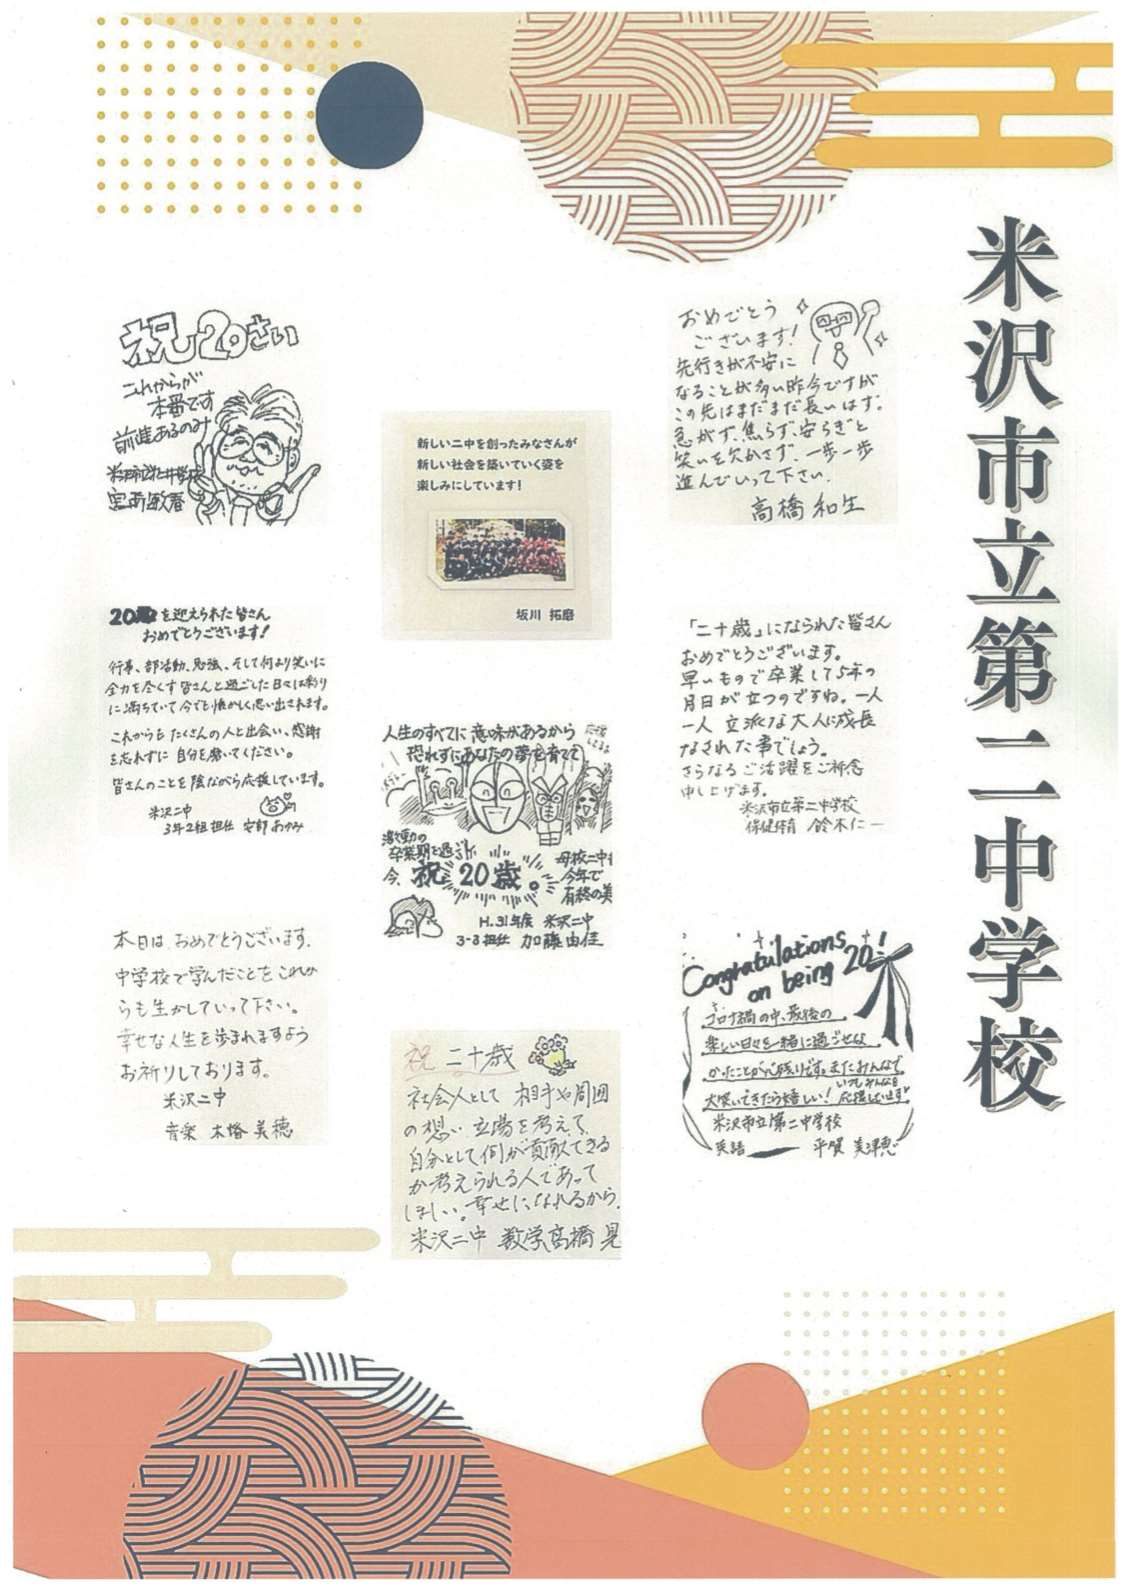 米沢市立第二中学校
おめでとう
ございます!
先行きが不安に
なることが多い昨今ですが
この先はまだまだ長いはず。
急がず、焦らず、安らぎと
笑いを欠かさず、一歩一歩
進んでいって下さい。
高橋 和生
「二十歳」になられた皆さん
おめでとうございます。
早いもので卒業して5年の
月日が立つのですね。一人
一人 立派な大人に成長
なされた事でしょう。
さらなるご活躍をご祈念
申し上げます。
米沢市立第二中学校
保健体育 鈴木仁一
Congratulations
on being 20!
コロナ禍の中、最後の
楽しい日々を一緒に過ごせな
かったことが心残りです。またみんなで
大笑いできたら嬉しい!
いつもみんなを
応援しています
米沢市立第二中学校
英語 平賀 美津恵
新しい二中を創ったみなさんが
新しい社会を築いていく姿を
楽しみにしています!
坂川 拓磨
人生のすべてに意味があるから
恐れずにあなたの夢を育てて
激動の
卒業期を過ごし
今、祝 20歳。
母校二中も
今年で
有終の美
H.31年度 米沢二中
3-3担任 加藤由佳
祝 二十歳
社会人として 相手や周囲
の想い、立場を考えて、
自分として何が貢献できる
か考えられる人であって
ほしい。幸せになれるから。
米沢二中 数学 高橋 晃
祝20さい
これからが
本番です
前進あるのみ
米沢市立第二中学校
宮西敏春
20歳を迎えられた皆さん
おめでとうございます!
行事、部活動、勉強、そして何より笑いに
全力を尽くす皆さんと過ごした日々は彩り
に満ちていて今でも懐かしく思い出されます。
これからもたくさんの人と出会い、感謝
を忘れずに 自分を磨いてください。
皆さんのことを陰ながら応援しています。
米沢二中
3年2組担任 安部 あゆみ
本日は、おめでとうございます。
中学校で学んだことをこれか
らも生かしていって下さい。
幸せな人生を歩まれますよう
お祈りしております。
米沢二中
音楽 木塔 美穂